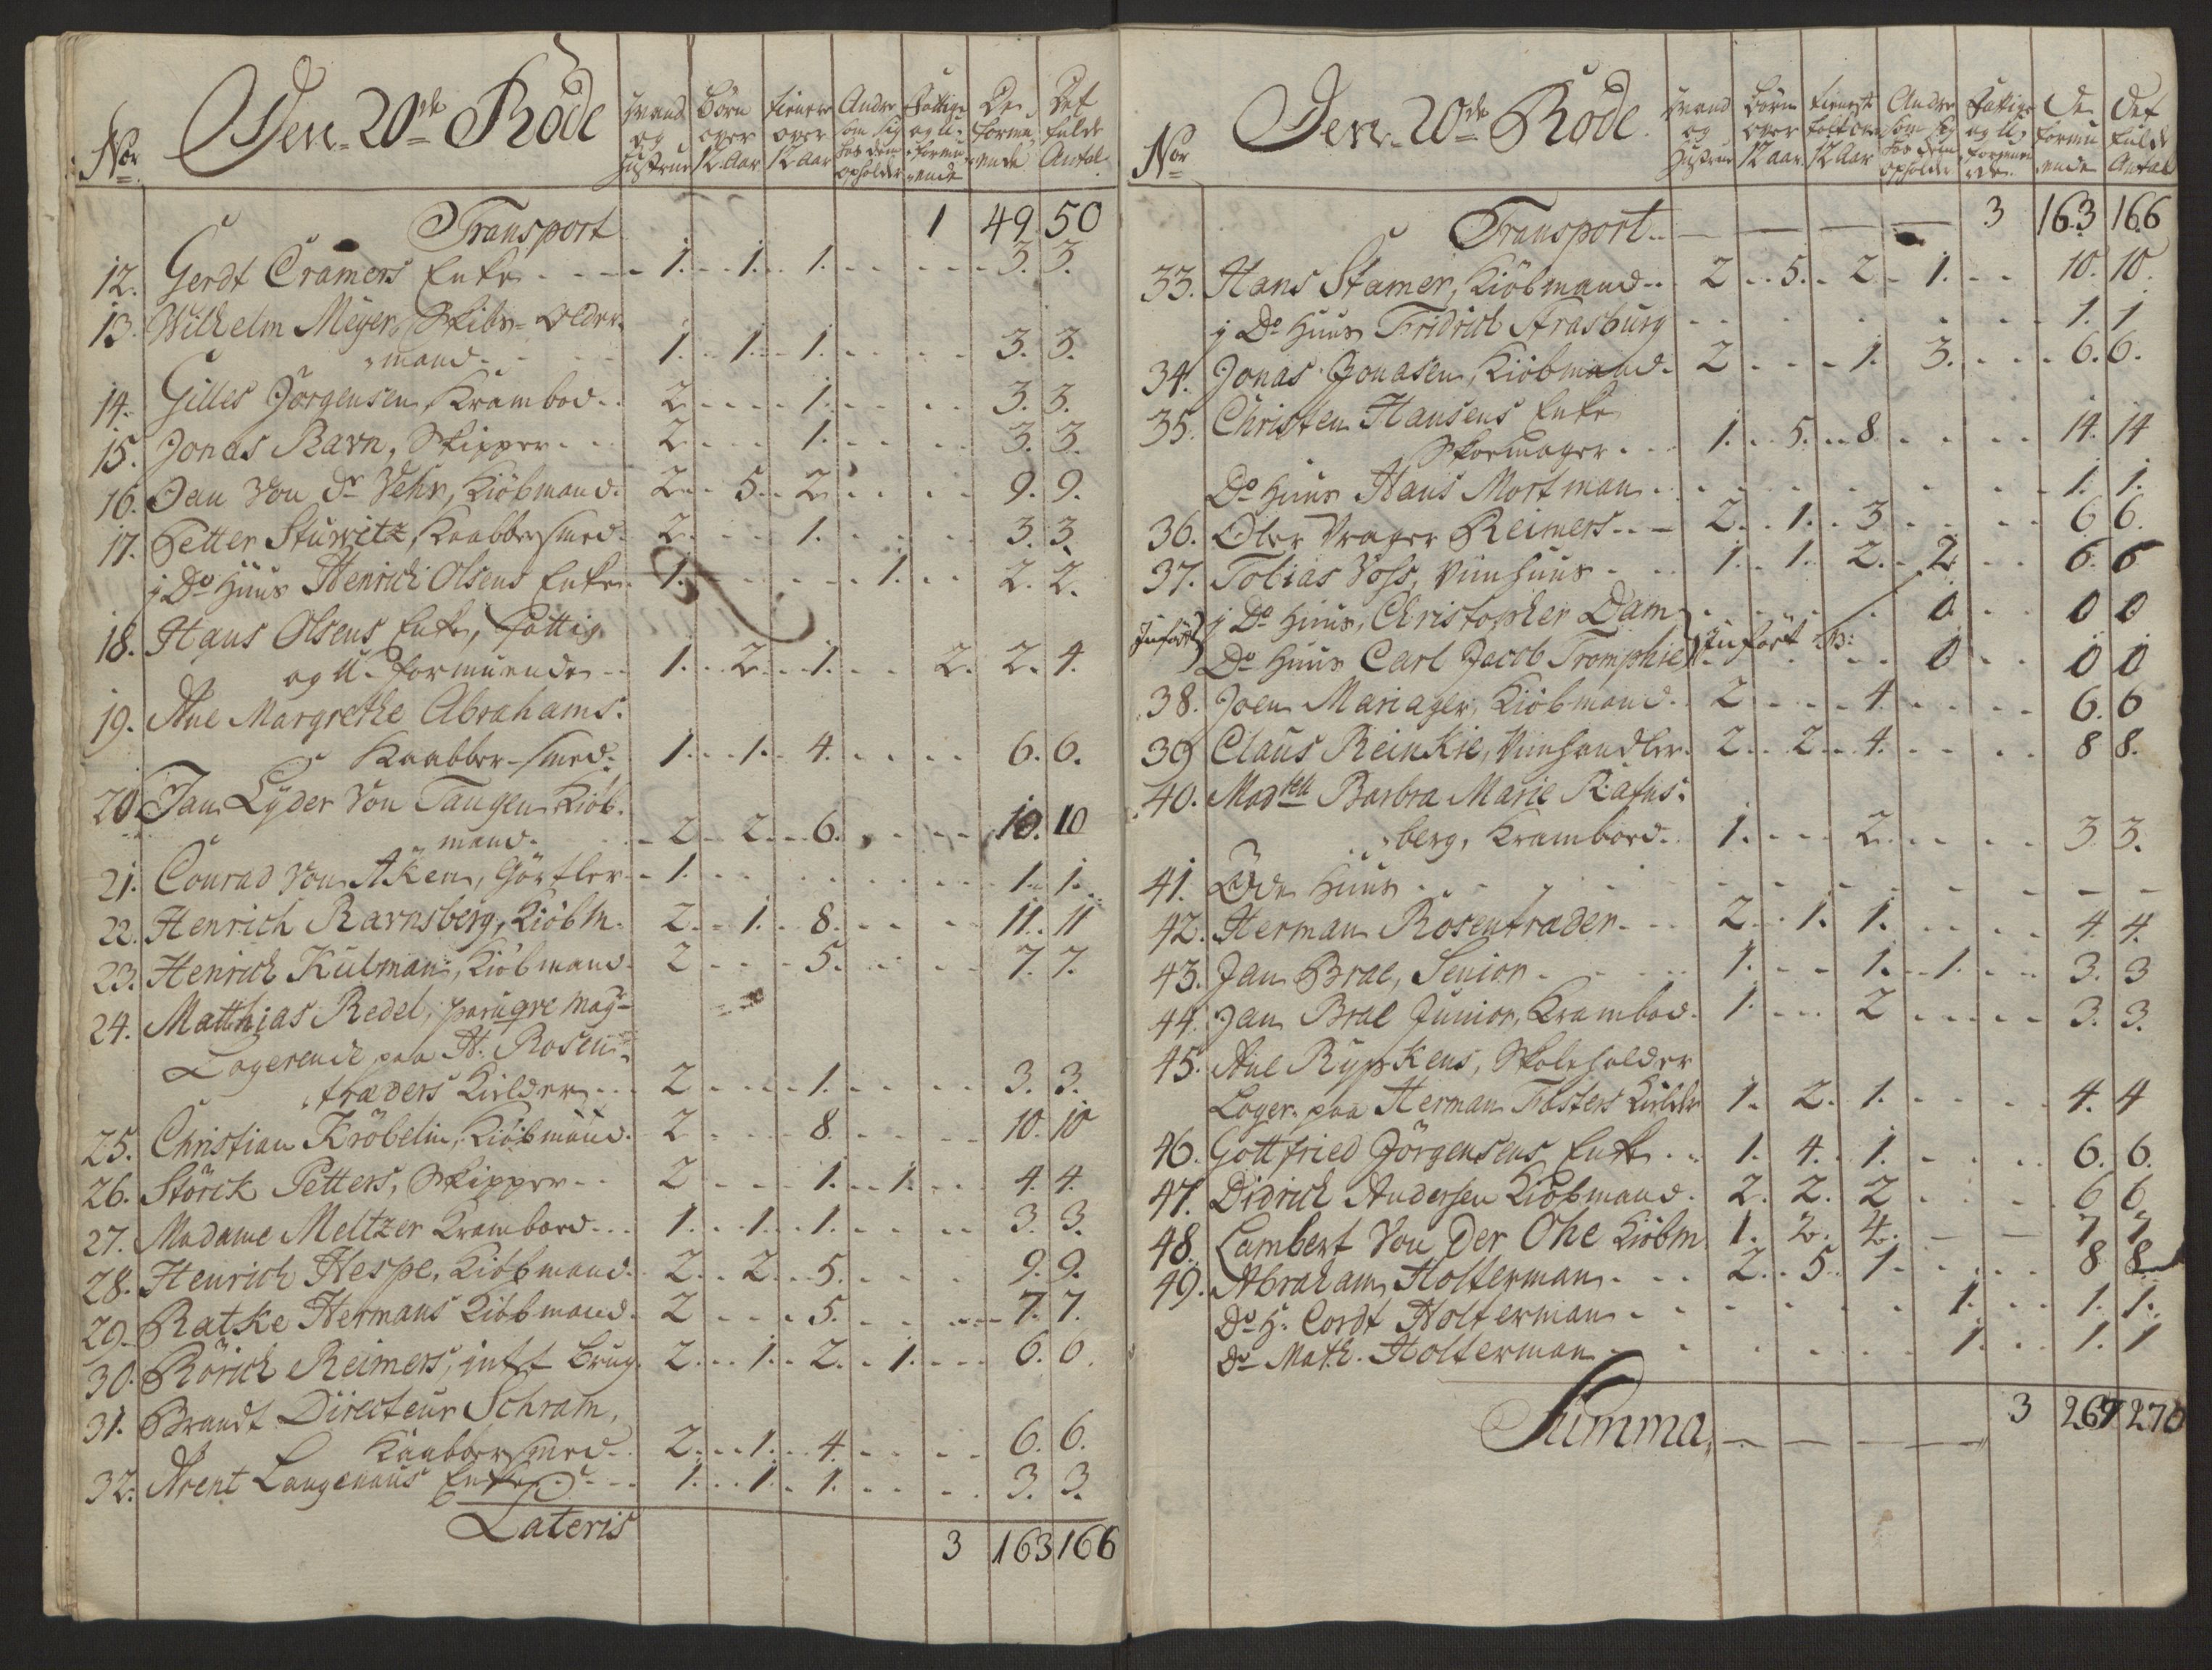 Den 20de Rode
No
Mand og Hustrue
Börn over 12 Aar
tienere over 12 Aar
Andre som sig hos dem opholder
Fattige og U-formuende
De formuende
Det fulde Antal
Transport 1 49 50
12. Gerdt Cramers Enke 1. 1. 1. 3. 3.
13. Wilhelm Meyer, Skibs-older-
mand 1. 1. 1. 3. 3.
14. Gilles Jörgensen, Krambod 2 1. 3. 3.
15. Jonas Ravn, Skipper 2 1. 3. 3.
16. Jan Von dr Vehr, Kiöbmand 2 5 2 9. 9.
17. Petter Stuwitz, Kaabbersmed 2 1. 3. 3.
i Do Huus Henrich Olsens Enke 1. 1. 2. 2.
18. Hans Olsens Enke, fattig
og U-formuende 1. 2. 1. 2. 2. 4.
19. Ane Margrethe Abrahams.
Kaabber-smed 1. 1. 4. 6. 6.
20. Jan Lyder Von Tangen Kiöb-
mand 2 2 6. 10. 10
21. Conrad Von Aken, Görtler 1. 1. 1.
22. Henrich Ravnsberg, Kiöbm. 2 1. 8. 11. 11
23. Henrich Kulman, Kiöbmand 2 5. 7. 7.
24. Matthias Redel, paruqve mag-
Logerende paa H. Rosen-
traders Kielder 2 1. 3. 3.
25. Christian Kröbelin, Kiöbmand 2 8. 10. 10
26. Störck Petters, Skipper 2 1. 1. 4. 4.
27. Madame Meltzer Krambod 1. 1. 1. 3. 3.
28. Henrich Hespe, Kiöbmand 2 2 5. 9. 9.
29. Ratke Hermans Kiöbmand 2 5. 7. 7.
30. Rörich Reimers, intet brug 2 1. 2. 1. 6. 6.
31. Brandt Directeur Schram,
Kaabbersmed 2 1. 4. 6. 6.
32. Arent Langenaus Enke 1. 1. 1. 3. 3.
Lateris 3 163 166
Den 20de Rode.
No
Mand og Hustrue
Börn over 12 aar
tieneste folk over 12 Aar
Andre som sig hos dem opholder
Fattige og U-formuende
De formuende
Det fulde Antal
Transport 3 163 166
33. Hans Stamer, Kiöbmand 2 5. 2 1. 10. 10.
i Do Huus Fridrich Strasburg 1. 1
34. Jonas Jonasen, Kiöbmand 2 1. 3. 6. 6.
35. Christen Hansens Enke
Skoemager 1. 5. 8 14. 14
Do Huus Hans Mortman 1. 1.
36. Olter Vrager Reimers 2. 1. 3 6 6.
37. Tobias Voss, Viinhuus 1. 1. 2. 2. 6. 6
i Do Huus, Christopher Dam 0 0 0
Do Huus Carl Jacob Tromphie 0 0 0
38. Joen Mariager, Kiöbmand 2 4. 6. 6
39 Claus Reinkie, Viinhandler 2 2 4. 8 8.
40. Madsell Barbra Marie Rafns-
berg, Krambod 1. 2. 3 3.
41. Öde Huus - -
42. Herman Rosentrader 2 1. 1. 4. 4.
43. Jan Brae, Senior 1. 1. 1. 3. 3
44. Jan Brae Junior, Krambod 1. 2 3. 3.
45. Ane Rypkens, Skoleholder
Loger. paa Herman Fasters Kielder 1. 2. 1. 4. 4
46. Gottfried Jörgensens Enke 1. 4. 1. 6. 6.
47. Didrich Andersen Kiöbmand 2. 2. 2 6 6
48. Lambert Von Der Ohe Kiöbm 1. 2. 4. 7 7
49. Abraham Holterman 2. 5. 1. 8 8
Do H. Cordt Holterman 1. 1. 1.
Do Math. Holterman 1. 1. 1
Summa 3 267 270